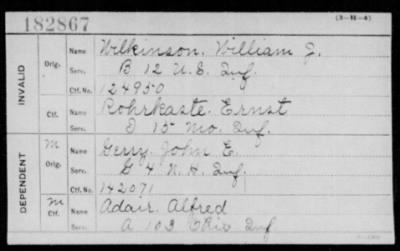 182867
(3-H-4)
INVALID
Orig. Name Wilkinson, William J.
Serv. B 12 U.S. Inf.
Ctf. No. 124950
Ctf. Name Rohrkaste, Ernst
Serv. D 15 Mo. Inf.
DEPENDENT
M Orig. Name Gerry, John E.
Serv. G 4 N.H. Inf.
Ctf. No. 142071
M Ctf. Name Adair, Alfred
Serv. A 103 Ohio Inf